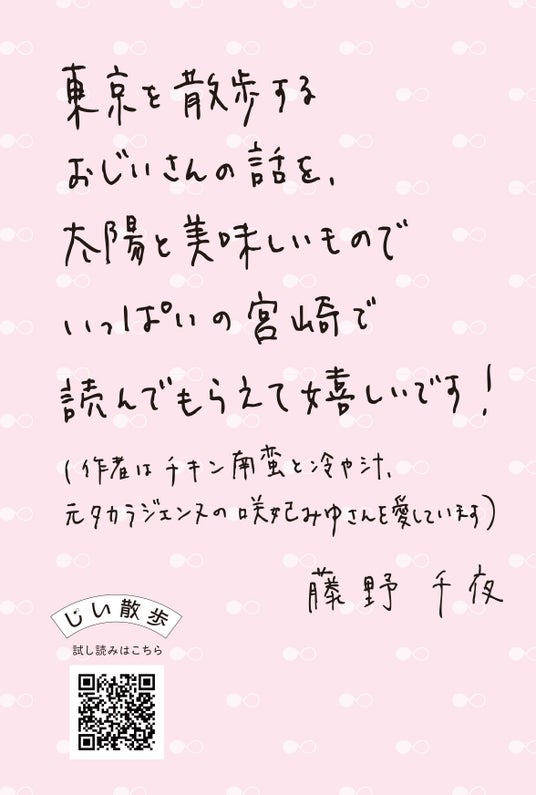 東京を散歩する
おじいさんの話を、
太陽と美味しいもので
いっぱいの宮崎で
読んでもらえて嬉しいです!
(作者はチキン南蛮と冷や汁、
元タカラジェンヌの咲妃みゆさんを愛しています)
藤野千夜
じい散歩
試し読みはこちら